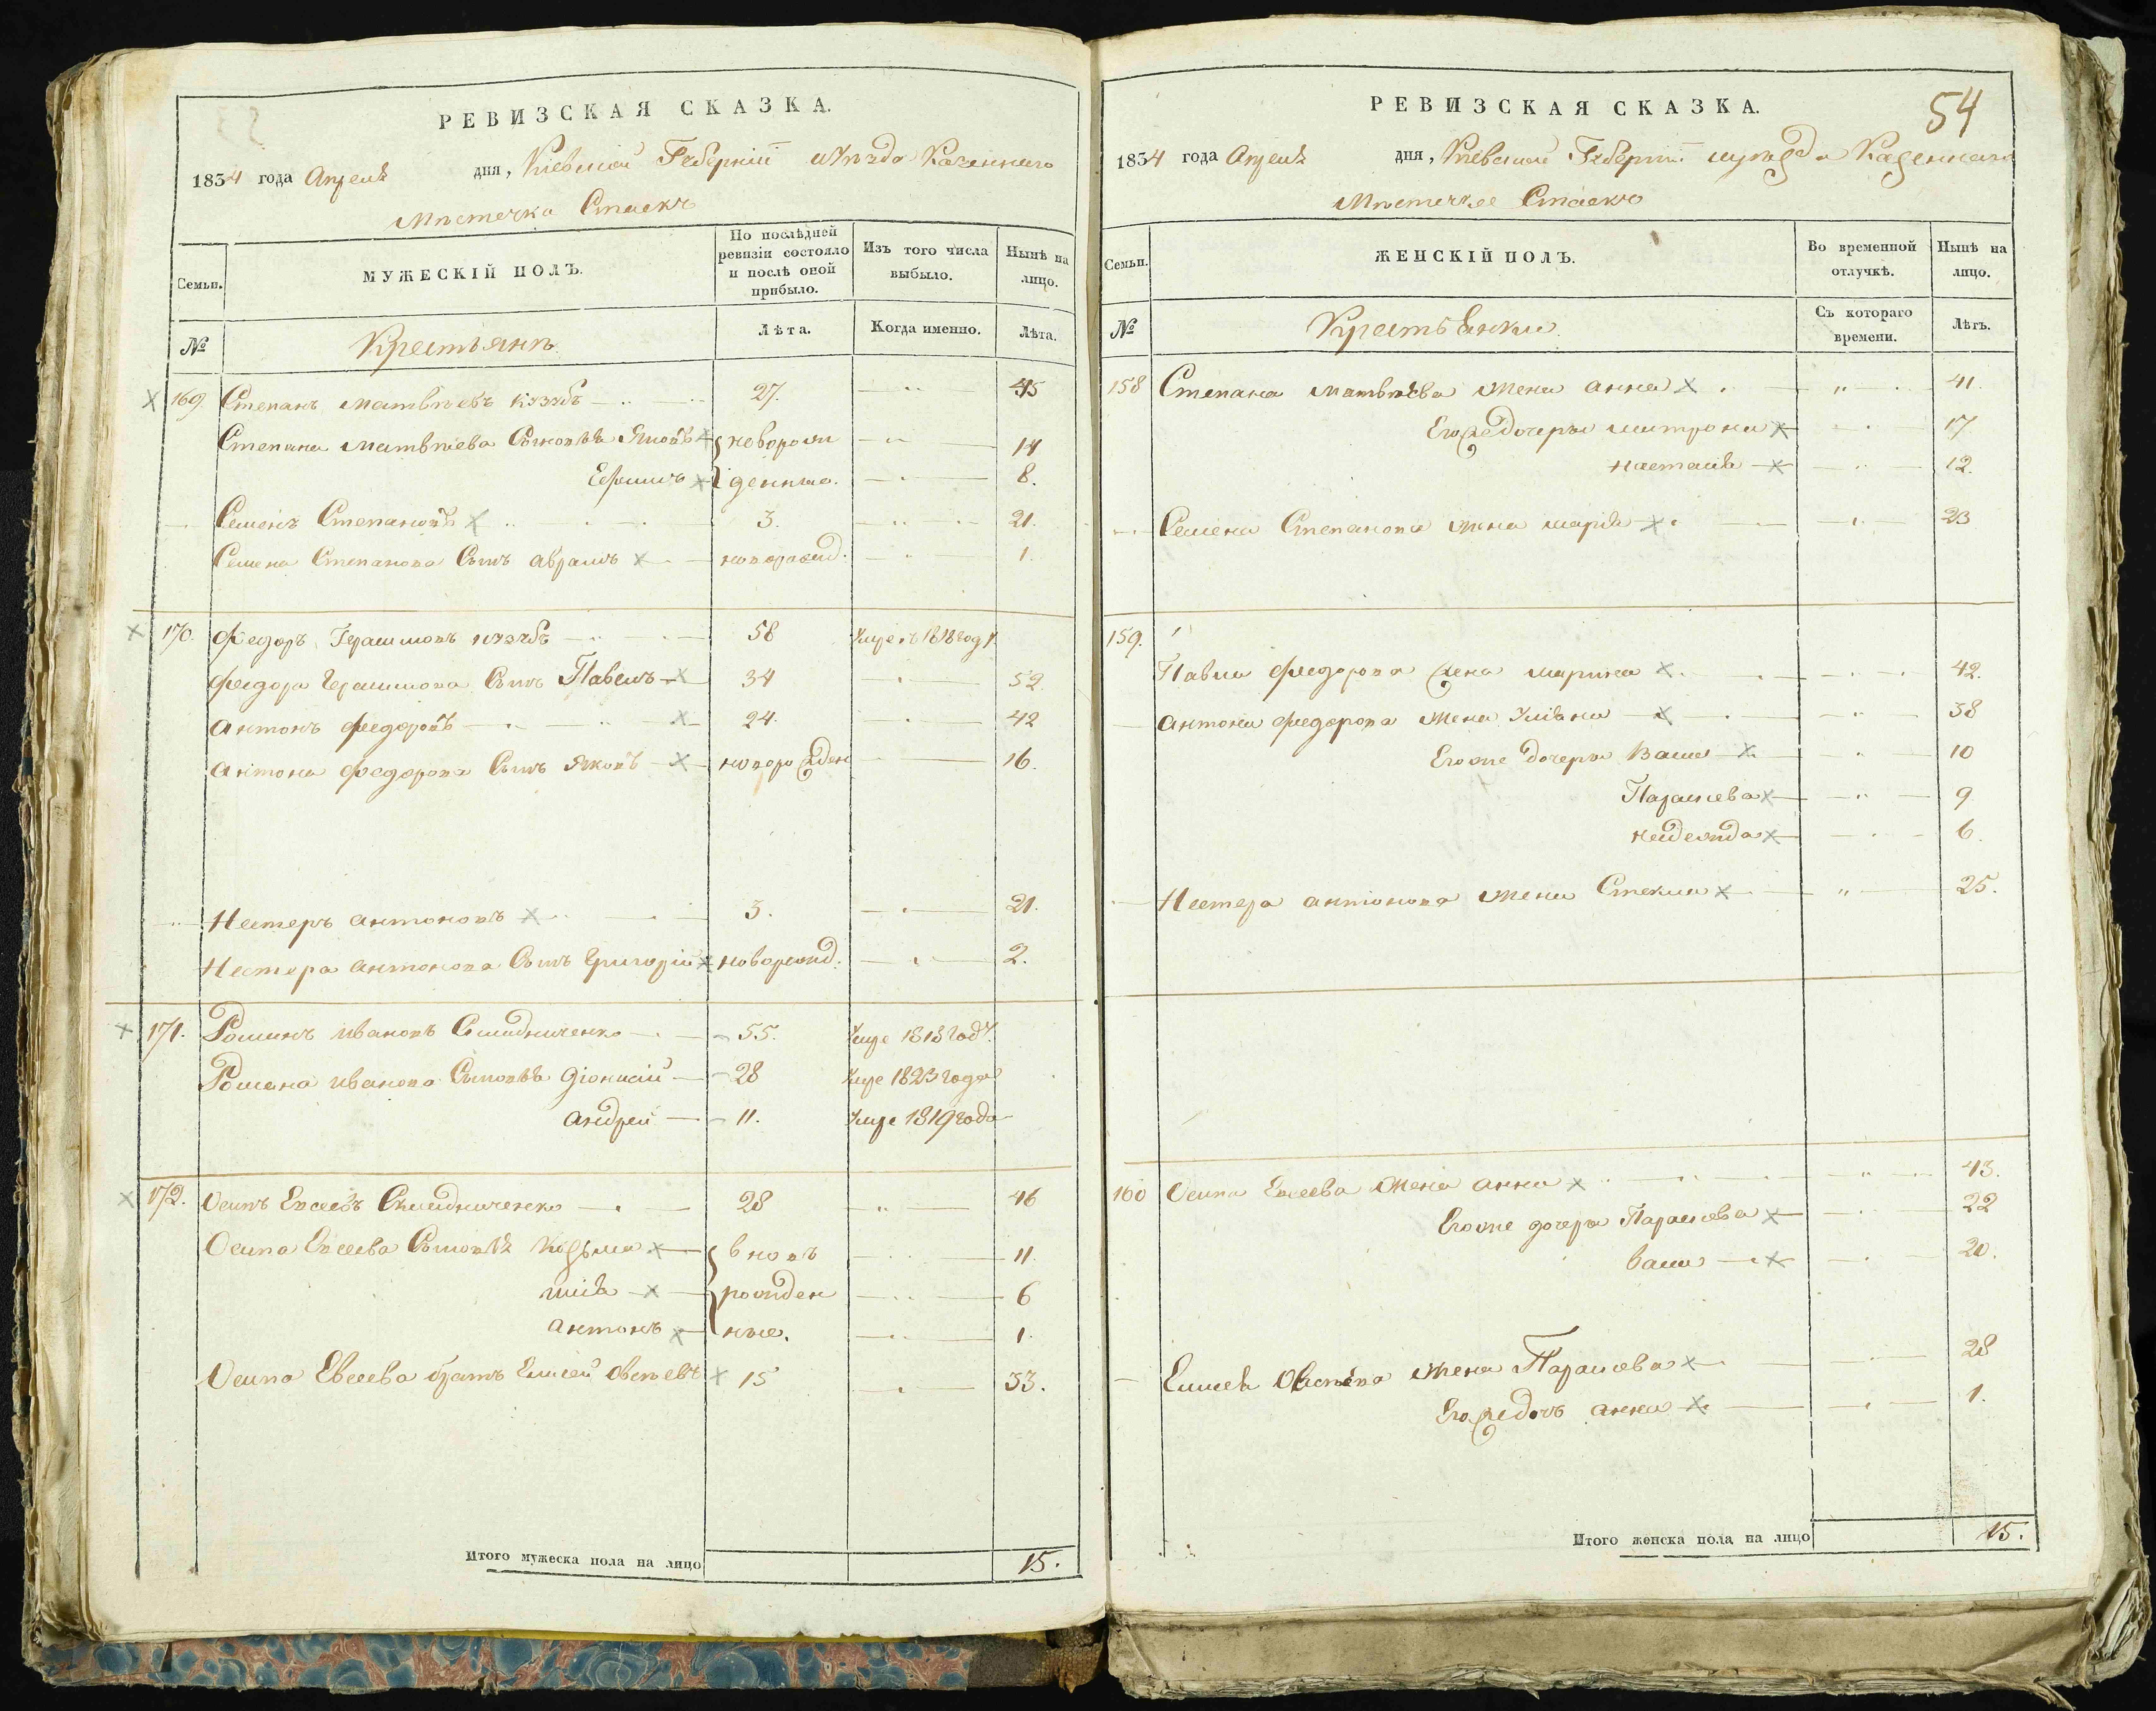 РЕВИЗСКАЯ СКАЗКА.
1834 года Апреля дня, Киевской Губернии уезда Казенного
Местечка Ставкъ
Семьи.
МУЖЕСКІЙ ПОЛЪ.
По послѣдней ревизіи состояло и послѣ оной прибыло.
Изъ того числа выбыло.
Нынѣ на лицо.
№
Крестьянъ
Лѣта.
Когда именно.
Лѣта.
169 Степанъ Матвѣевъ 27. 45
Степана Матвѣева Сыновья Яковъ новорож 14
Ефимъ денные. 8.
Семенъ Степановъ 3. 21.
Семена Степанова Сынъ Абрамъ новорожд. 1.
170. Федоръ Герасимовъ 58 Умре въ 1818 году
Федора Герасимова Сынъ Павелъ 34 52.
Антонъ Федоровъ 24. 42
Антона Федорова Сынъ Яковъ новорожден 16.
Нестеръ Антоновъ 3. 21.
Нестера Антонова Сынъ Григорій новорожд. 2.
171. Романъ Ивановъ 55. Умре 1818 году.
Романа Иванова Сыновья Діонисій 28 Умре 1823 года
Андрей 11. Умре 1819 года
172. Осипъ Евсеевъ 28 46
Осипа Евсеева Сыновья Козьма вновь 11.
Илія рожден 6
Антонъ ные. 1.
Осипа Евсеева братъ Елисей Овсѣевъ 15 33.
Итого мужеска пола на лицо 15.
РЕВИЗСКАЯ СКАЗКА. 54
1834 года Апреля дня, Киевской Губернии уезда Казенного
Местечка Ставкъ
Семьи.
ЖЕНСКІЙ ПОЛЪ.
Во временной отлучкѣ.
Нынѣ на лицо.
№
Крестьянки
Съ котораго времени.
Лѣтъ.
158 Степана Матвѣева жена Анна 41.
Его же дочеры Митрона 17.
Настасія 12.
Семена Степанова жена Марія 23
159.
Павла Федорова жена Марина 42.
Антона Федорова жена Уліяна 38
Его же дочеры Васса 10
Параскева 9.
Надежда 6.
Нестера Антонова жена Стекла 25.
160 Осипа Евсеева жена Анна 43.
Его же дочеры Параскева 22
Васса 20.
Елисея Овсѣева жена Параскева 28
Его же дочь Анна 1.
Итого женска пола на лицо 15.